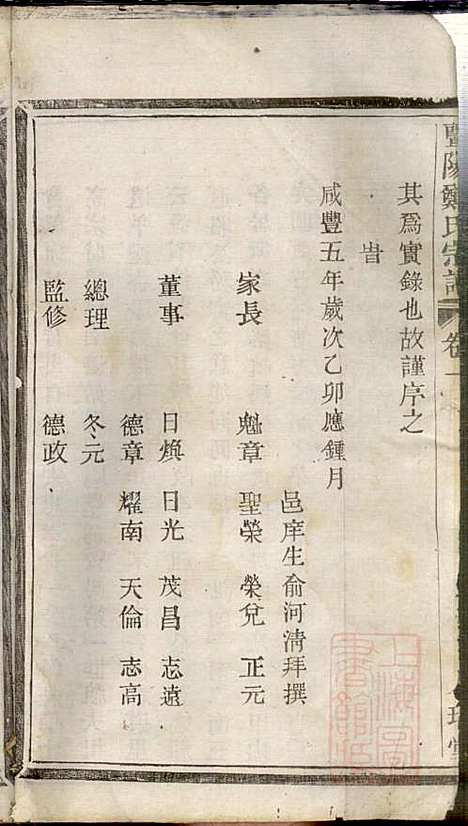 暨陽鄭氏宗譜 卷一
其爲實錄也故謹序之
旹
咸豐五年歲次乙卯應鍾月
邑庠生俞河淸拜撰
家長 魁章 聖榮 榮兌 正元
董事 日煥 日光 茂昌 志遠
德章 耀南 天倫 志高
總理 冬元
監修 德政
上海圖書館印